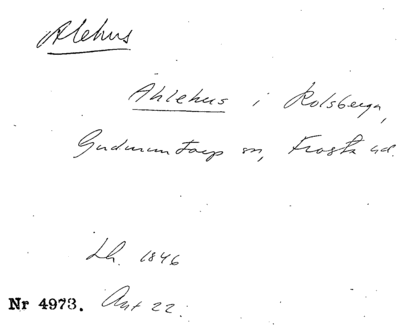 Alehus
Ahlehus i Rolsberga,
Gudmuntorp sn, Frosta hd.
Lh. 1846
Nr 4973. Ant 22.